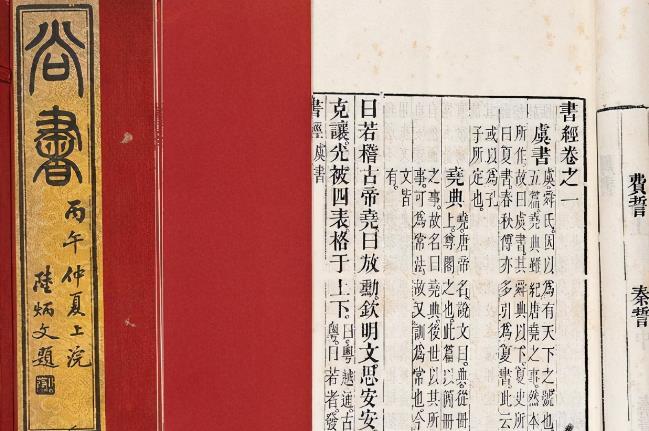 尚書
丙午仲夏上浣
陸炳文題
費誓
秦誓
書經卷之一
虞書
虞舜氏。因以為有天下之號也
五篇堯典雖紀唐堯之事。然本
所作。故曰虞書。其舜典以下。夏史所
曰夏書。春秋傳亦多引為夏書。此云
或以為孔
子所定也。
堯典
堯唐帝名。說文曰。典從冊
上。尊閣之也。此篇以簡冊
之事。故名曰堯典。後世以其所
事。可為常法。故又訓為常也。今
文皆
有。
曰若稽古帝堯曰放勳欽明文思安安
克讓。光被四表格于上下。
曰粵越通古
曰若者發
書經虞書